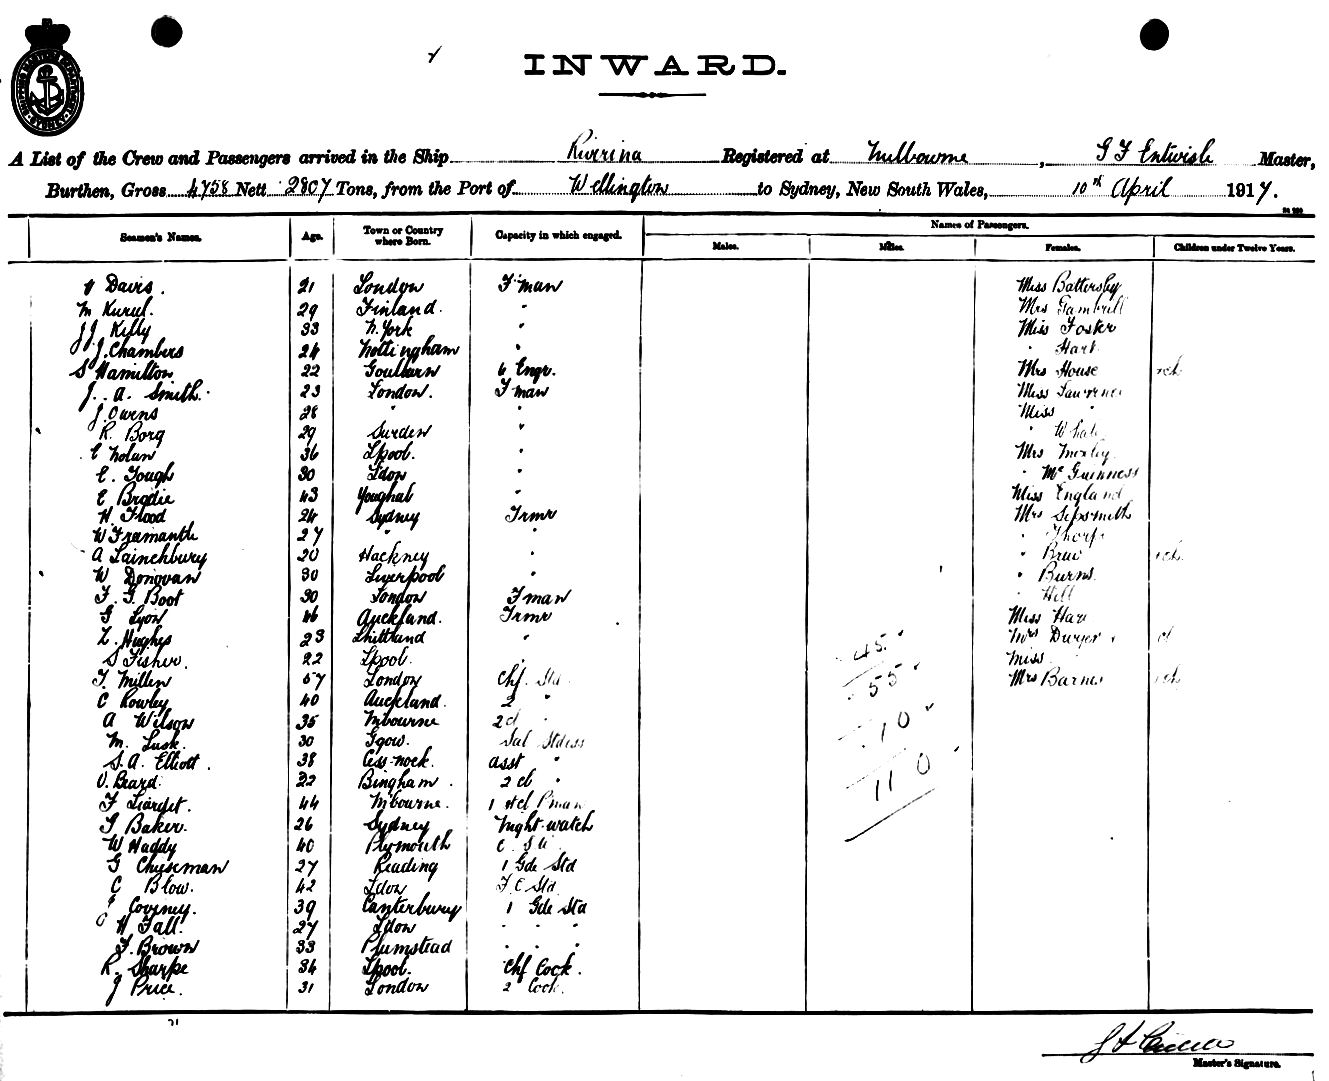 INWARD.
A List of the Crew and Passengers arrived in the Ship Riverina Registered at Melbourne, G F Entwisle Master,
Burthen, Gross 4758 Nett 2807 Tons, from the Port of Wellington to Sydney, New South Wales, 10th April 1917.
Seamen's Names. Age. Town or Country where Born. Capacity in which engaged. Names of Passengers.
Males. Males. Females. Children under Twelve Years.
Davis. 21 London F'man Miss Battersby
M 29 Finland. " Mrs Gambrill
J.J. Kelly 33 N. York " Miss Foster
J. Chambers 24 Nottingham " " Hart
S Hamilton 22 Goulburn 6 Engr. Mrs House
J. A. Smith. 23 London. F'man Miss Lawrence
J. Owens 28 " " Miss "
R. Borg 29 "
E Nolan 36 Lpool. " Mrs
E. Tough 30 Ldon " " McGuinness
E Brodie 43 Youghal " Miss England
H Flood 24 Sydney Trmr Mrs Sipsmith
W 27 " " " Thorp
A Lainchbury 20 Hackney " "
W Donovan 30 Liverpool " " Burns.
F. G. Boot 30 London F'man " Hill
G Lyon 46 Auckland. Trmr Miss
Z. Hughes 23 " Mrs Dwyer
S Fisher. 22 Lpool. " Miss
T. Millen 57 London Chf. Std. Mrs Barnes
C Rowley 40 Auckland. 2 "
A Wilson 35 Mbourne 2 cl "
M. Lusk. 30 Ggow. Sal Stdess
S. A. Elliott. 38 Cess-nock. asst "
O. Beard. 22 Bingham. 2 cl "
F Liardet. 44 M'bourne.
G Baker. 26 Sydney Night-watch
W Haddy 40 Plymouth
G Chiseman 27 Reading 1 Gde Std
C Blow. 42 Ldon F C Std
Coviney. 39 Canterbury 1 Gde Std
H Fall. 27 Ldon " " "
F. Brown 33 Plumstead " " "
R. Sharpe 34 Lpool. Chf Cock.
J Price. 31 London 2 Cock.
45
55
10
110
Master's Signature.